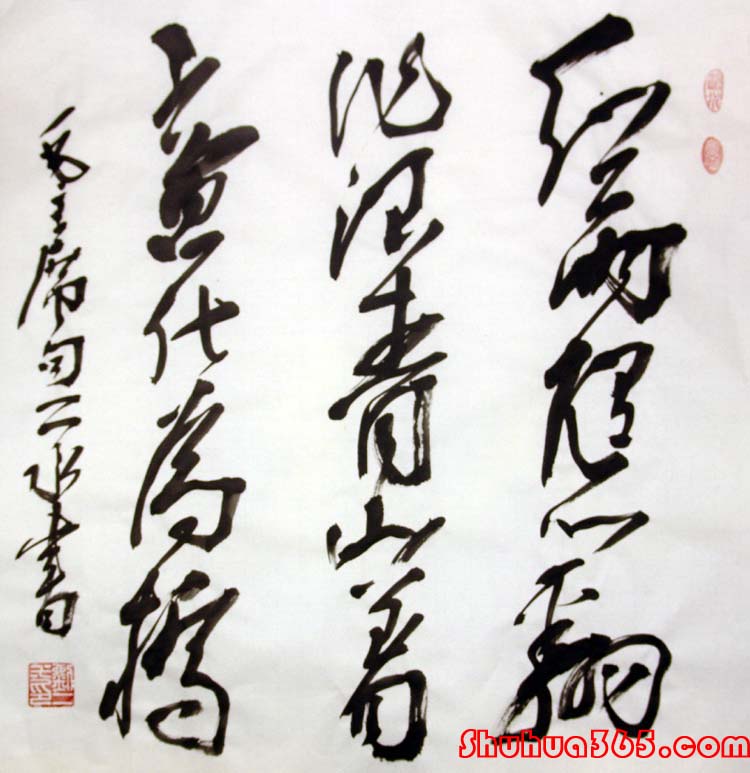 红雨随心翻
作浪青山着
意化為橋
毛主席句二水書
Shuhua365.com